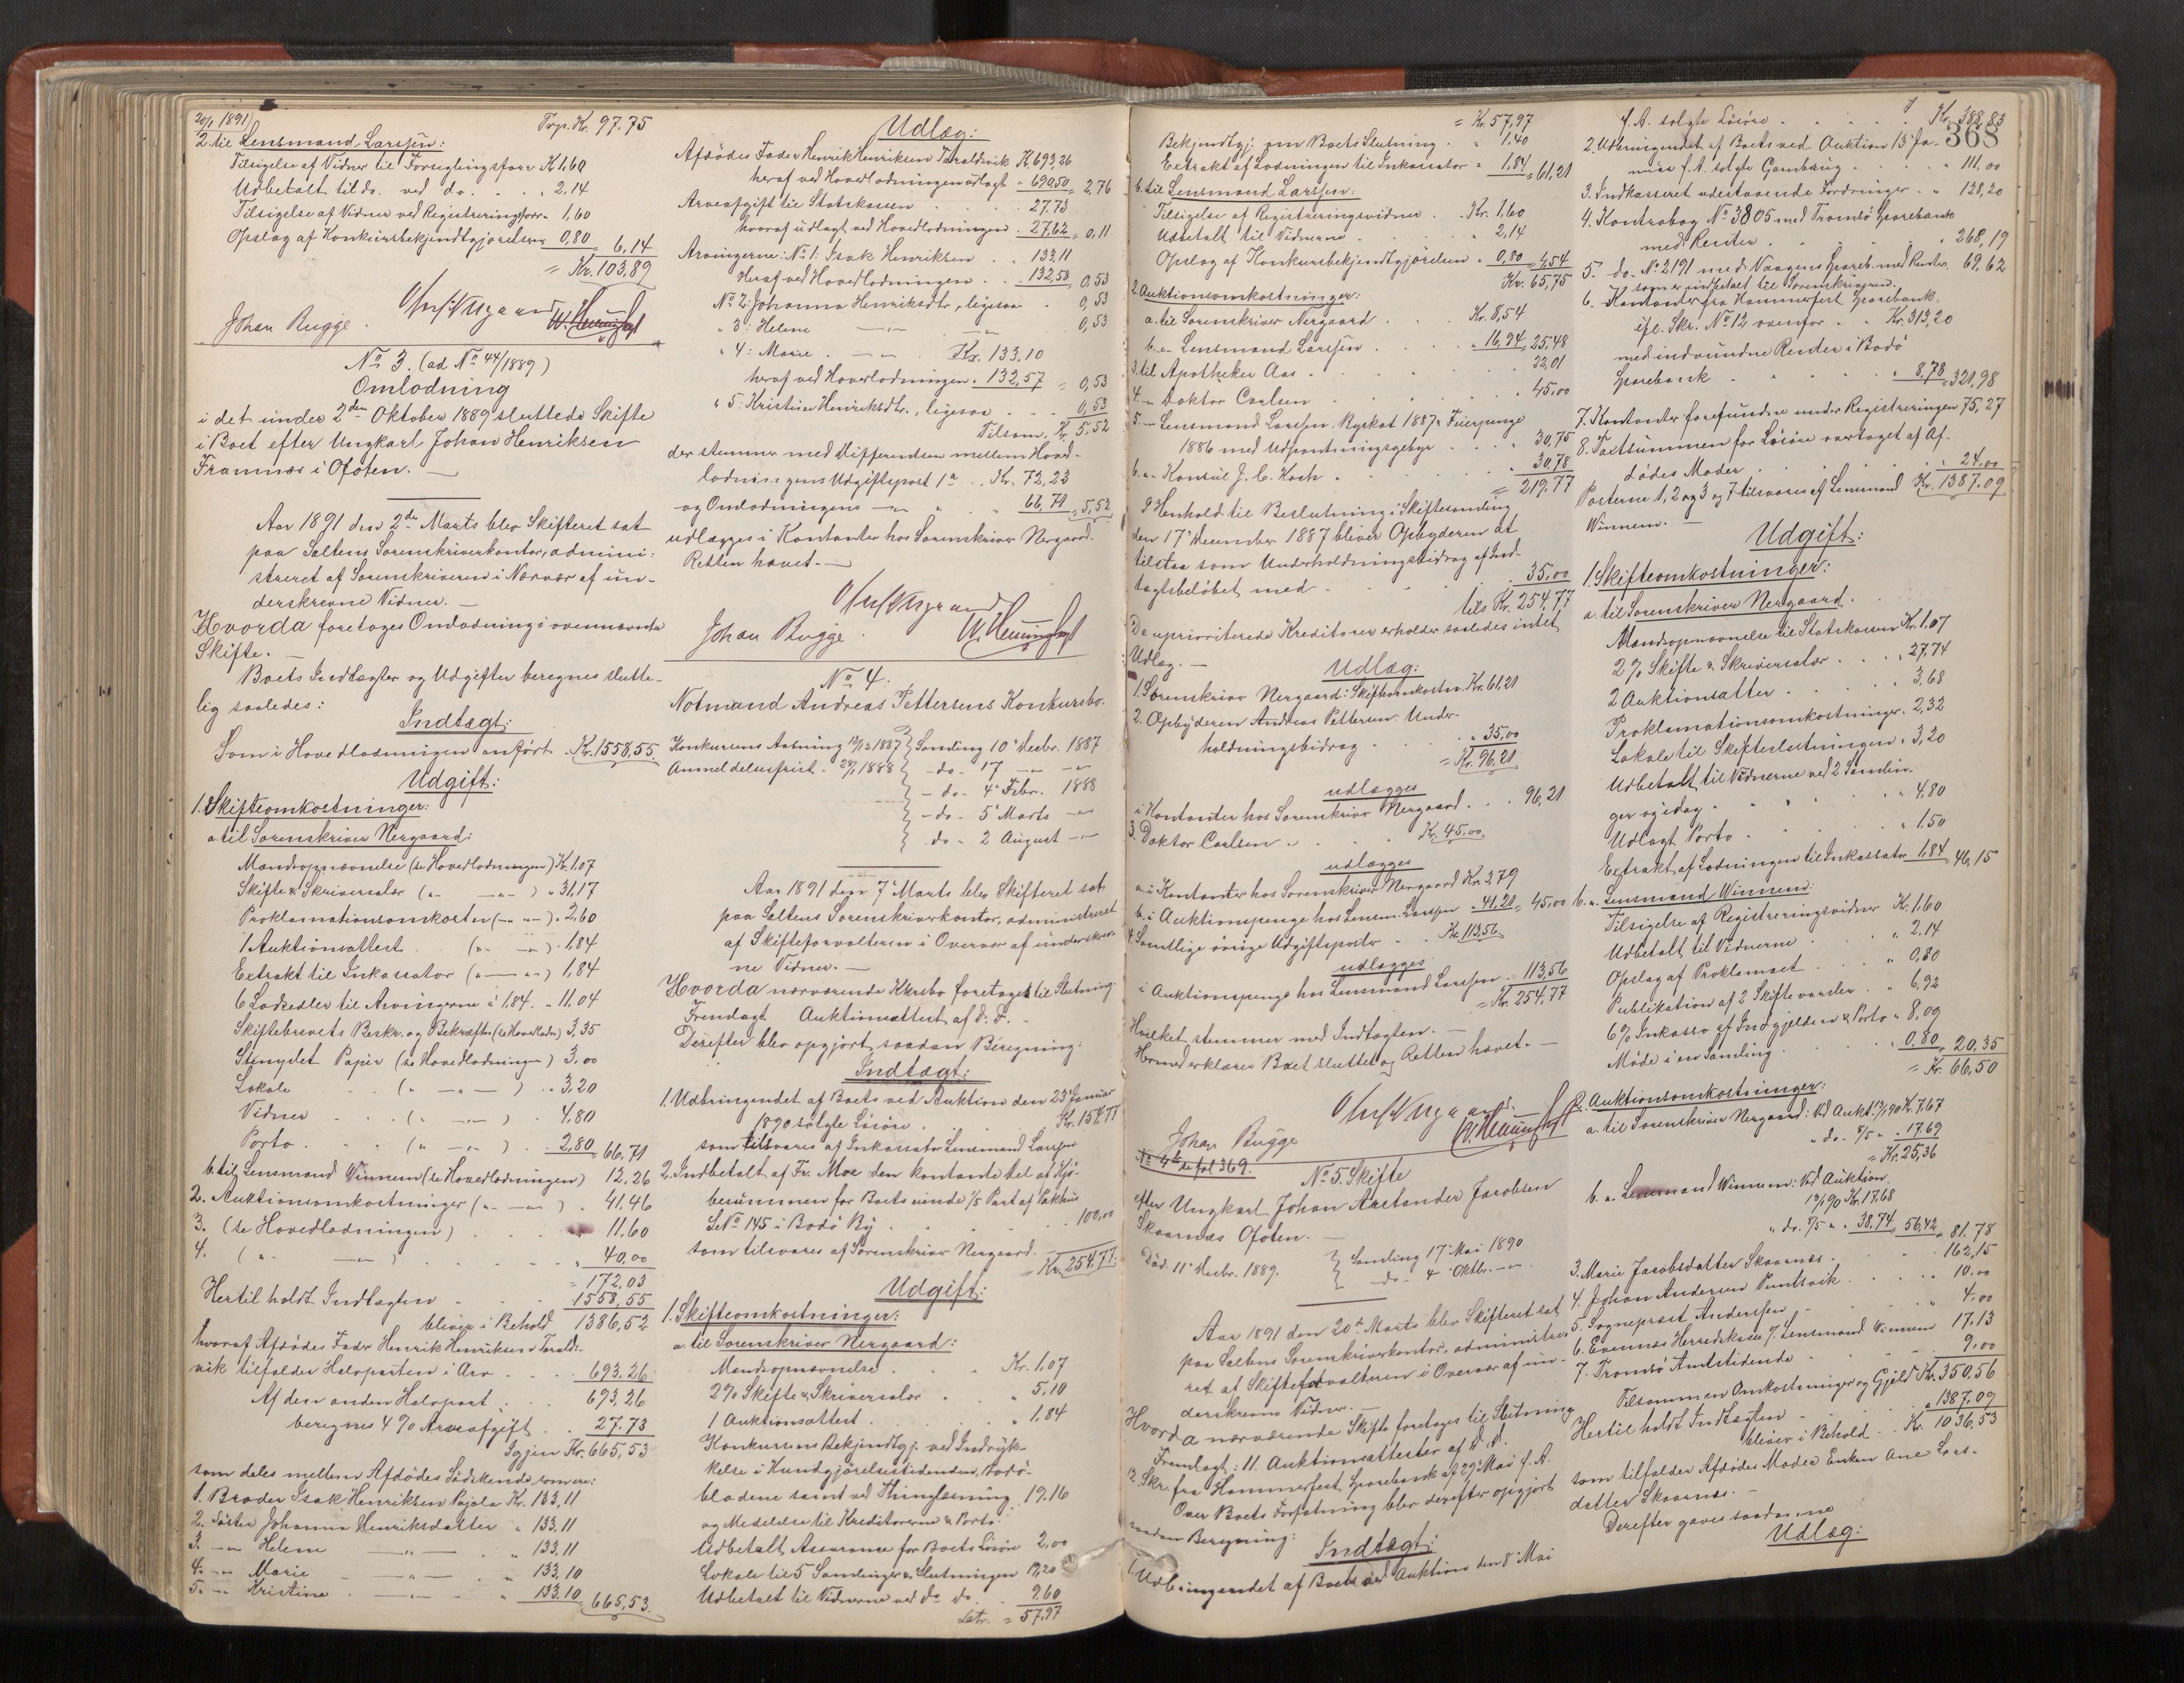 20/1 1891
Trp. Kr. 97.75
2. til Lensmand Larssen:
Tilsigelse af Vidner til Forseglingsforr. Kr. 1,60
Udbetalt til do. ved do. . . " 2,14
Tilsigelse af Vidner ved Registreringsforr. " 1,60
Opslag af Konkursbekjendtgjørelsen " 0,80 = 6,14
= Kr. 103,89
Johan Rugge.
No 3. (ad No 44/1889)
Omlodning
i det under 2den Oktober 1889 sluttede Skifte
i Boet efter Ungkarl Johan Henriksen
Framnæs i Ofoten. —
Aar 1891 den 2de Marts blev Skifteret sat
paa Saltens Sorenskriverkontor, admini-
streret af Sorenskriveren i Nærvær af un-
derskrevne Vidner. —
Hvorda foretoges Omlodning i ovennævnte
Skifte. —
Boets Indtægter og Udgifter beregnes slutte-
lig saaledes:
Indtægt:
Som i Hovedlodningen anført . Kr. 1558,55.
Udgift:
1. Skifteomkostninger:
a. til Sorenskriver Nergaard:
Mandsopnævnelse (se Hovedlodningen) Kr. 1,07
Skifte & Skriversalær (" — " — ) " 31,17
Proklamationsomkostn. (— " —) " 2,60
1 Auktionsattest (" — ") " 1,84
Extrakt til Inkassator (" — " —) 1,84
6 Lodsedler til Arvingerne à 1,84 . " 11,04
Skiftebrevets Beskr. og Bekræftn. (se Hovedlodn.) 3,35
Stemplet Papir (se Hovedlodningen) 3,00
Lokale . (" — " — ) . " 3,20
Vidner . . (" — " — ) . 4,80
Porto . . (" — " — ) . 2,80 = 66,71
b. til Lensmand Winnem (se Hovedlodningen) 12,26
2. Auktionsomkostninger (" — " — ) . 41,46
3. (se Hovedlodningen) . . 11,60
4. ( " — " — ) . . . " 40,00
= 172,03
Hertil holdt Indtægten . . . 1558,55
bliver i Behold 1386,52
hvoraf Afdødes Fader Henrik Henriksen Tarald-
vik tilfalder Halvparten i Arv . . . 693,26
Af den anden Halvpart . . 693,26
beregnes 4 % Arveafgift . . 27,73
Igjen Kr. 665,53
som deles mellem Afdødes Sødskende, som ere:
1. Broder Isak Henriksen Kr. 133,11
2. Søster Johanna Henriksdatter " 133,11
3. — " Helene — " — . " 133,11
4. — " Marie — " — . " 133,10
5. — " Kristine — " — . " 133,10 665,53.
Udlæg:
Afdødes Fader Henrik Henriksen Taraldsvik Kr. 693,26
heraf ved Hovedlodningen udlagt " 690,50 = 2,76
Arveafgift til Statskassen . . . 27,73
hvoraf udlagt ved Hovedlodningen . 27,62 = 0,11
Arvingerne: No 1: Isak Henriksen . . 133,11
Heraf ved Hovedlodningen . . 132,58 0,53
No 2: Johanna Henriksdtr., ligesaa . 0,53
" 3: Helene — " — — " — 0,53
" 4: Marie . — " — Kr. 133,10
heraf ved Hovedlodningen . 132,57 = 0,53
" 5: Kristine Henriksdtr., ligesaa . . . 0,53
Tilsam. Kr. 5,52
der stemmer med Differencen mellem Hoved-
lodningens Udgiftspost 1a . . Kr. 72,23
og Omlodningens — " — " . . 66,71 = 5,52
udlægges i Kontanter hos Sorenskriver Nergaard.
Retten hævet. —
Johan Rugge.
No 4.
Notmand Andreas Pettersens Konkursbo.
Konkursens Aabning 12/12 1887 } Samling 10' Decbr. 1887
Anmeldelsesfrist - 28/1 1888 } - do - 17 — " —
- do - 4' Febr. 1888
- do - 5' Marts — " —
do - 2 August — " —
Aar 1891 den 7' Marts blev Skifteret sat
paa Saltens Sorenskriverkontor, administreret
af Skifteforvalteren i Overvær af underskrev-
ne Vidner. —
Hvorda nærværende Kkrsbo foretoges til Slutning.
Fremlagt Auktionsattest af d. D. -
Derefter blev opgjort saadan Beregning:
Indtægt:
1. Udbringendet af Boets ved Auktion den 23' Januar
1890 solgte Løsøre . . Kr. 154,77
som tilsvares af Inkassator Lensmand Larssen
2. Indbetalt af Fr. Moe den kontante Del af Kjø-
besummen for Boets eiende 1/5 Part af Pakhus
S. No 145 i Bodø By . . . . . 100,00
som tilsvares af Sorenskriver Nergaard. —
= Kr. 254,77.
Udgift:
1. Skifteomkostninger:
a. til Sorenskriver Nergaard:
Mandsopnævnelse . . . Kr. 1,07
2 % Skifte & Skriversalær . . " 5,10
1 Auktionsattest . . . " 1,84
Konkursens Bekjendtgj. ved Indryk-
kelse i Kundgjørelsestidenden, Bodø-
bladene samt ved Thinglæsning 19,16
og Meddelelse til Kreditorerne & Porto.
Udbetalt Assurance for Boets Løsøre 2,00
Lokale til 5 Samlinger & Slutningen 19,20
Udbetalt til Vidnerne ved do do . . 9,60
Latr. = 57,97
= Kr. 57,97
Bekjendtgj. om Boets Slutning . " 1,40
Extrakt af Lodningen til Inkassator " 1,84 = 61,21
b. til Lensmand Larssen:
Tilsigelse af Registreringsvidner . . Kr. 1,60
Udbetalt til Vidnerne . . " 2,14
Opslag af Konkursbekjendtgjørelsen " 0,80 = 4,54
Kr. 65,75
2. Auktionsomkostninger:
a. til Sorenskriver Nergaard . . Kr. 8,54
b. " Lensmand Larssen . . . " 16,94 = 25,48
3. til Apotheker Aas . . . . . 22,01
4. — " Doktor Carlsen . . . . " 45,00
5. — " Lensmand Larssen. Byskat 1887 & Feierpenge
1886 med Udpantningsgebyr . . " 30,75
6. — " Konsul J. C. Koch . . . . " 30,78
= 219,77
I Henhold til Beslutning i Skiftesamling
den 17' December 1887 bliver Opbyderen at
tilstaa som Underholdningsbidrag af Ind-
tægtsbeløbet med . . . . 35,00
tils. Kr. 254,77
De uprioriterede Kreditorer erholder saaledes intet
Udlæg. —
Udlæg:
1. Sorenskriver Nergaard: Skifteomkostn. Kr. 61,21
2. Opbyderen Andreas Pettersen: Under-
holdningsbidrag . . . . " 35,00
= Kr. 96,21
udlægges
i Kontanter hos Sorenskriver Nergaard . . . 96,21
3. Doktor Carlsen . . . Kr. 45,00.
udlægges
a. i Kontanter hos Sorenskriver Nergaard Kr. 3,79
b. i Auktionspenge hos Lensm. Larssen " 41,21 = 45,00
4. Samtlige øvrige Udgiftsposter . . Kr. 113,56
udlægges
i Auktionspenge hos Lensmand Larssen . 113,56
= Kr. 254,77
Hvilket stemmer med Indtægten. —
Hermed erklæres Boet sluttet og Retten hævet. —
Johan Rugge
No 4 b se fol 369.
No 5. Skifte
efter Ungkarl Johan Axelander Jacobsen
Skaanæs Ofoten. —
Død. 11' Decbr. 1889. } Samling 17' Mai 1890
- do - 4' Oktbr. — " —
Aar 1891 den 20de Marts blev Skifteret sat
paa Saltens Sorenskriverkontor, administre-
ret af Skifteforvalteren i Overvær af un-
derskrevne Vidner. —
Hvorda nærværende Skifte foretoges til Slutning
Fremlagt: 11. Auktionsattester af d. D.
12. Skr. fra Hammerfest Sparebank af 29' Mai f. A.
Over Boets Forfatning blev derefter opgjort
saadan Beregning:
Indtægt:
1. Udbringendet af Boets ved Auktion den 8' Mai
368
f. A. solgte Løsøre . . . . . Kr. 388,83
2. Udbringendet af Boets ved Auktion 13' Ja-
nuar f. A. solgte . . . . 111,00
3. Indkasseret udestaaende Fordringer . . " 128,20
4. Kontrabog No 3805 med Tromsø Sparebank
med Renter . . . . . . " 268,19
5. do. No 2191 med Vaagens Spareb. med Renter. 69,62
som er indbetalt til Sorenskriveren.
6. Kontanter fra Hammerfest Sparebank.
ifl. Skr. No 12 ovenfor . . Kr. 313,20
med indvundne Renter i Bodø
Sparebank . . . . " 8,78 = 321,98
7. Kontanter forefundne under Registreringen 75,27
8. Taxtsummen for Løsøre overtaget af Af-
dødes Moder . . . . . " 24,00
Posterne 1, 2 og 3 og 7 tilsvares af Lensmand Kr. 1387,09
Winnem. —
Udgift:
1. Skifteomkostninger:
a. til Sorenskriver Nergaard.
Mandsopnævnelse til Statskassen Kr. 1,07
2 % Skifte & Skriversalær . . . " 27,74
2 Auktionsatter . . . . " 3,68
Proklamationsomkostninger. 2,32
Lokale til Skifteslutningen . 3,20
Udbetalt til Vidnerne ved 2 Samlin-
ger og idag . . . . " 4,80
Udlagt Porto . . . . " 1,50
Extrakt af Lodningen til Inkassator 1,84 46,15
b. " Lensmand Winnem:
Tilsigelse af Registreringsvidner Kr. 1,60
Udbetalt til Vidnerne . . " 2,14
Opslag af Proklamaet . . . " 0,80
Publikation af 2 Skiftevarsler . " 6,92
6 % Inkasso af Indgjelden & Porto " 8,09
Møde i en Samling . . . . " 0,80 = 20,35
= Kr. 66,50
2. Auktionsomkostninger:
a. til Sorenskriver Nergaard: Ved Aukt. 13/1 90 Kr. 7,67
" do. 8/5 " . 17,69
= Kr. 25,36
b. " Lensmand Winnem: Ved Auktion
13/1 90 Kr. 17,68
" do. 8/5 " . 38,74 56,42 = 81,78
3. Marie Jacobsdatter Skaanæs . . . 162,15
4. Johan Andersen . . . . 10,00
5. Sogneprest Anderssen . . . " 4,00
6. Evenæs Herredskasse v/ Lensmand Winnem 17,13
7. Tromsø Amtstidende . . . . 9,00
Tilsammen Omkostninger og Gjæld Kr. 350,56
Hertil holdt Indtægten . . . " 1387,09
bliver i Behold . . Kr. 1036,53
som tilfalder Afdødes Moder Enken Ane Lars-
datter Skaanæs. —
Derefter gaves saadanne
Udlæg: